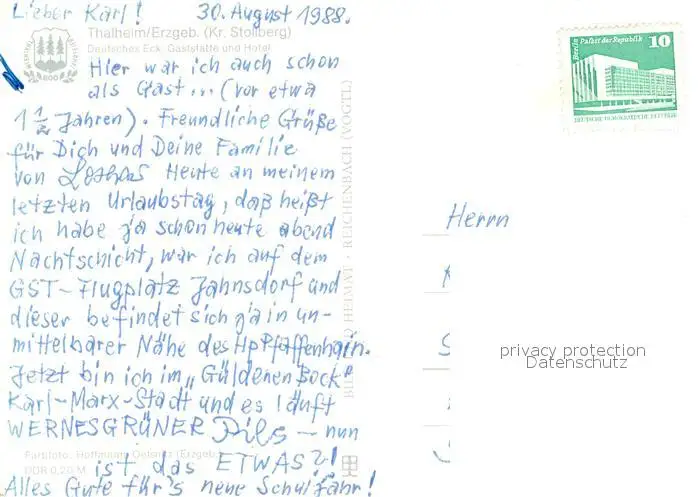 Lieber Karl! 30. August 1988.
Thalheim/Erzgeb. (Kr. Stollberg)
Deutsches Eck, Gaststätte und Hotel
Hier war ich auch schon
als Gast... (vor etwa
1 1/2 Jahren). Freundliche Grüße
für Dich und Deine Familie
von Lothar Heute an meinem
letzten Urlaubstag, daß heißt
ich habe ja schon heute abend
Nachtschicht, war ich auf dem
GST-Flugplatz Jahnsdorf und
dieser befindet sich ja in un-
mittelbarer Nähe des Hp Pfaffenhain.
Jetzt bin ich im „Güldenen Bock"
Karl-Marx-Stadt und es läuft
WERNESGRÜNER Pils - nun
ist das ETWAS?!
Alles Gute für's neue Schuljahr!
Farbfoto: Hoffmann, Oelsnitz (Erzgeb.)
DDR 0,20 M
BILD HEIMAT · REICHENBACH (VOGTL)
800
Berlin Palast der Republik 10
DEUTSCHE DEMOKRATISCHE REPUBLIK
Herrn
privacy protection
Datenschutz